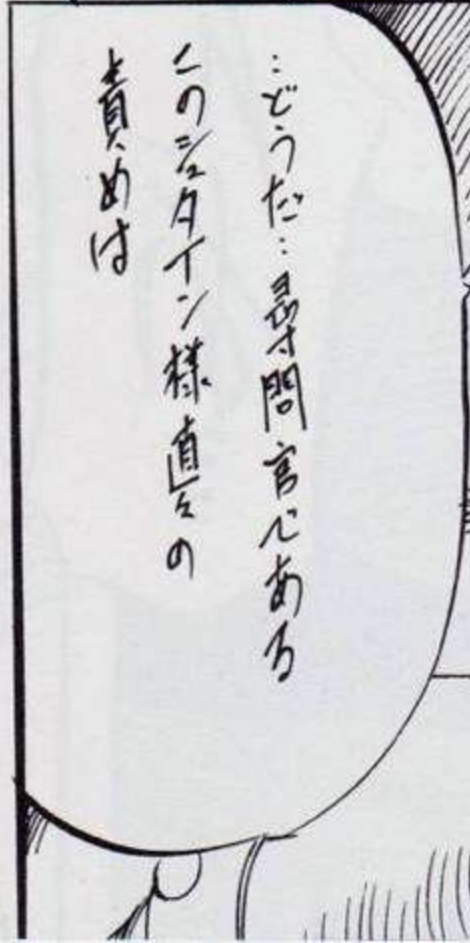 …どうだ…尋問官である
このシュタイン様直々の
責めは